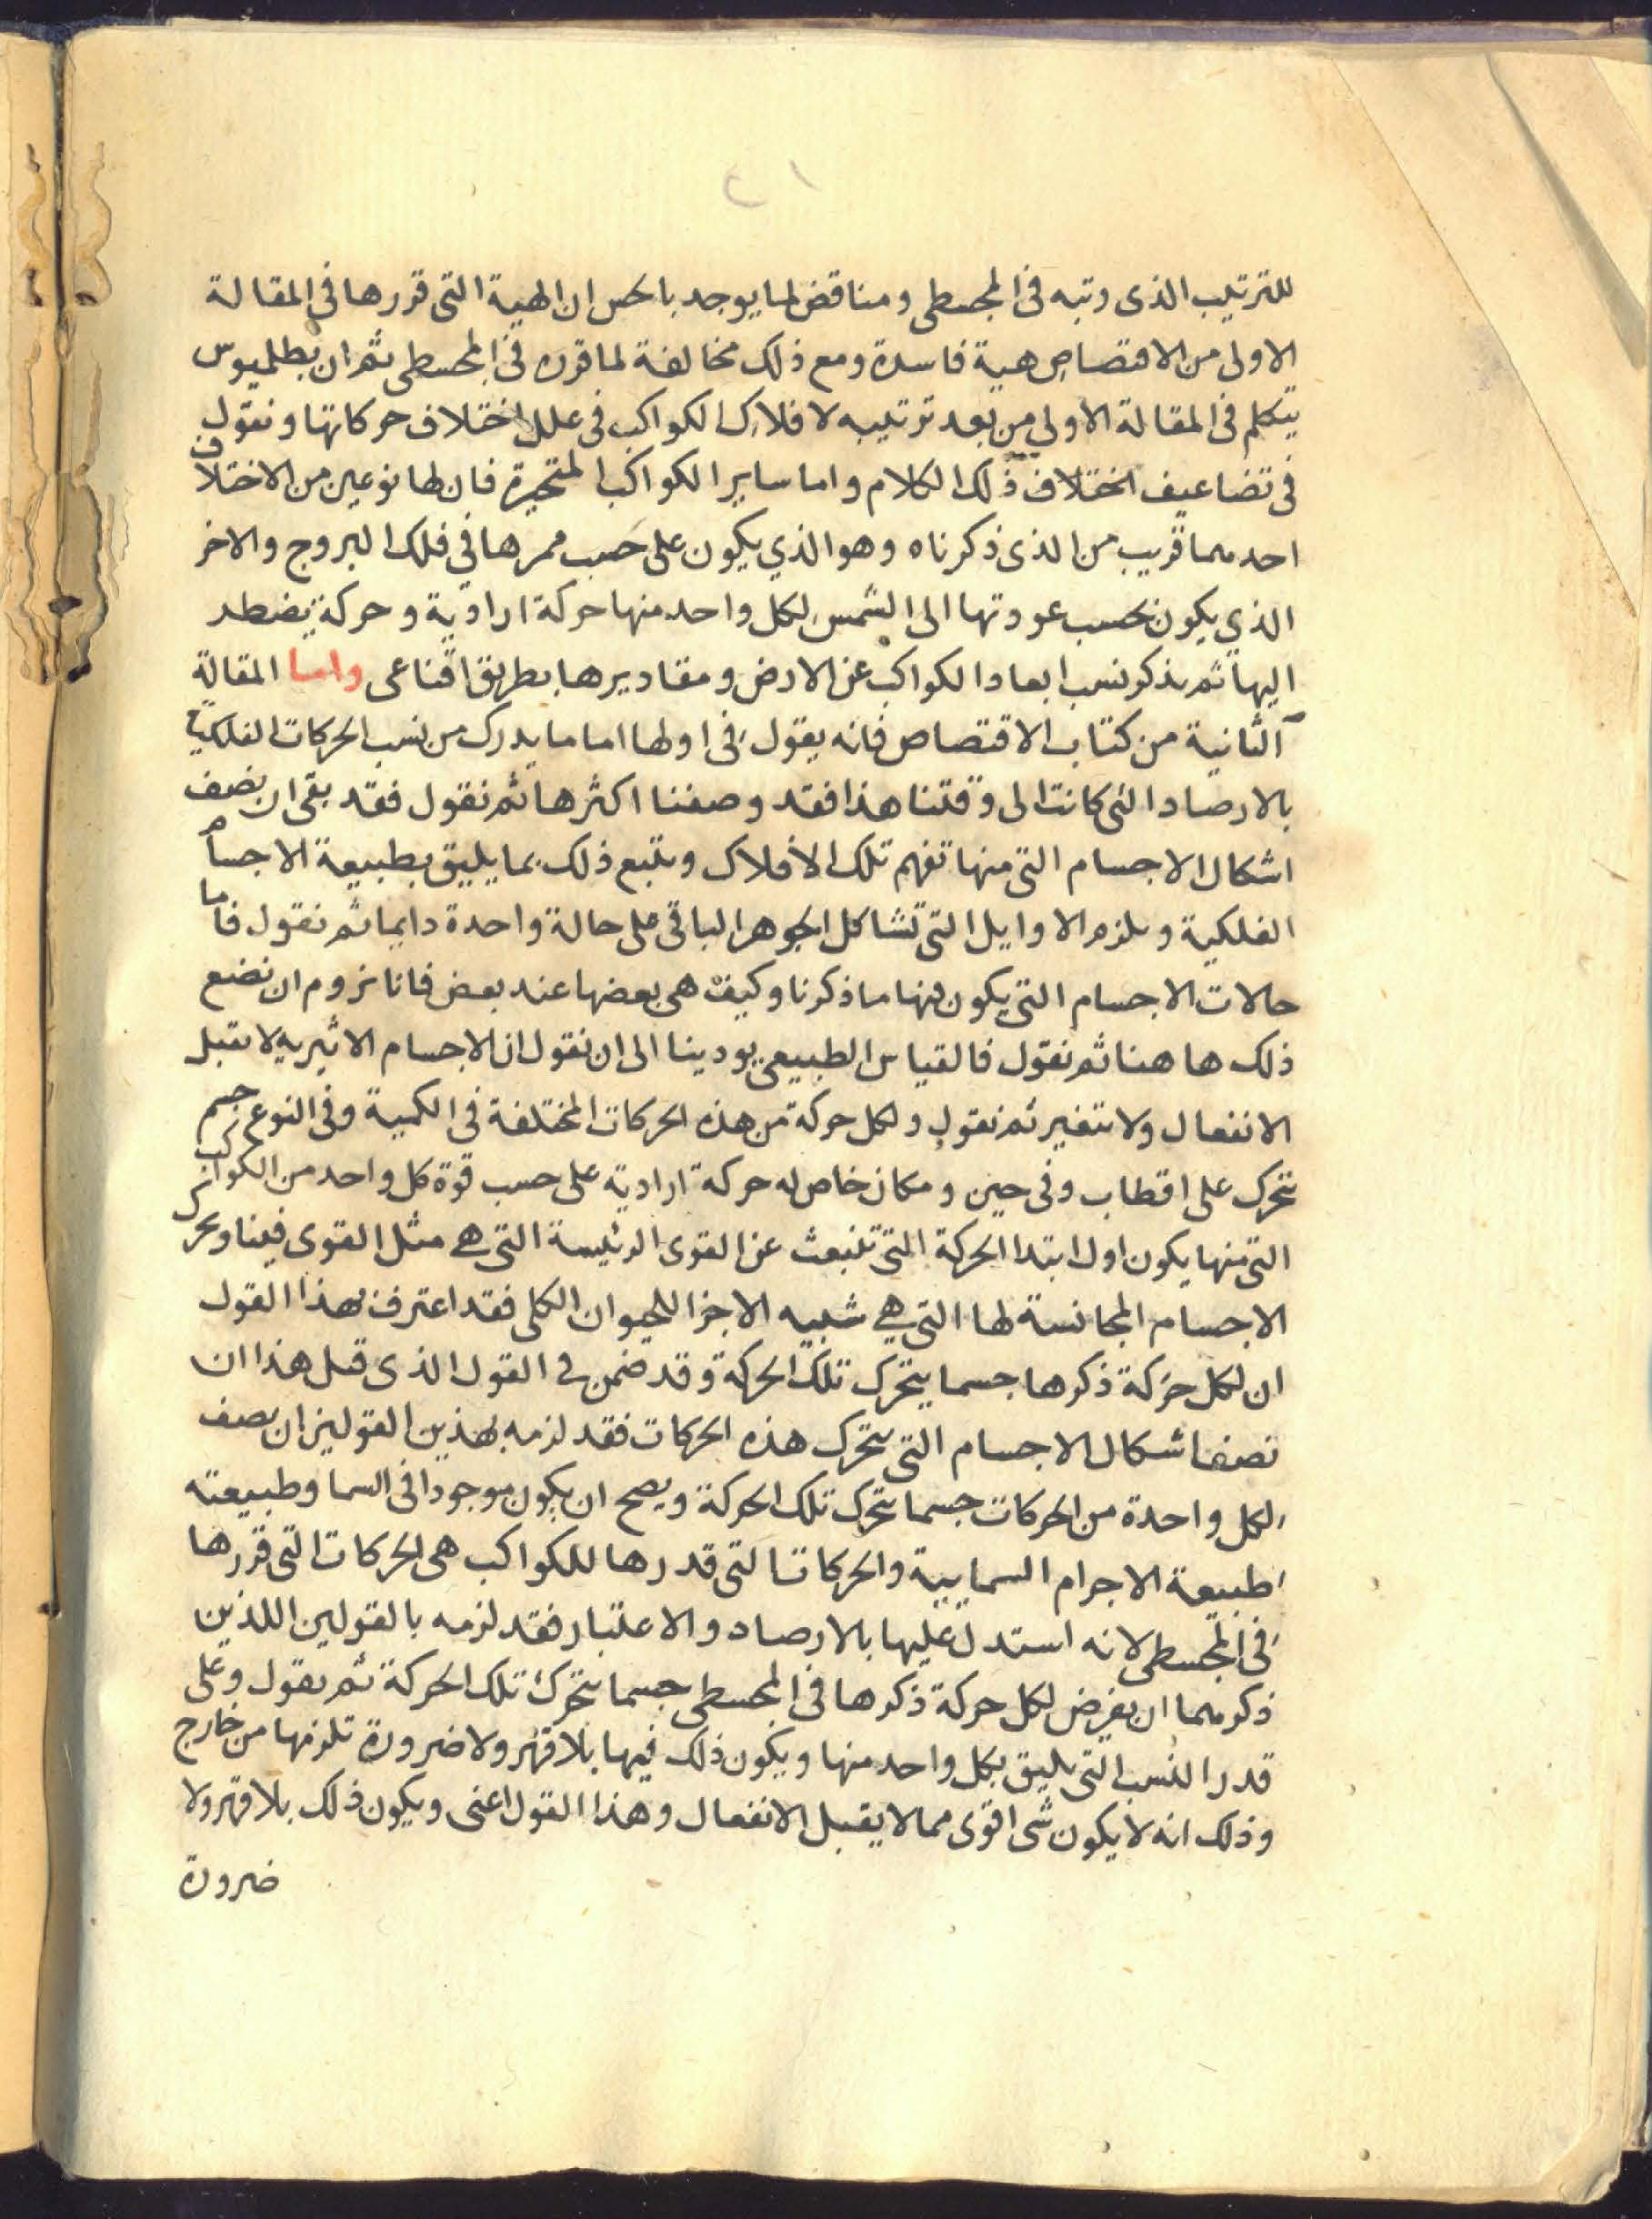 ٢١
للترتيب الذى رتبه فى المجسطى ومناقض لما يوجد بالحس ان الهية التى قررها فى المقالة
الاولى من الاقتصاص هية فاسدة ومع ذلك مخالفة لما قرره فى المجسطى ثم ان بطلميوس
يتكلم فى المقالة الاولى من بعد ترتيبه لافلاك الكواكب فى علل اختلاف حركاتها ونقول
فى تضاعيف اختلاف ذلك الكلام واما ساير الكواكب المتحيرة فان لها نوعين من الاختلاف
احدهما قريب من الذى ذكرناه وهو الذي يكون على حسب ممرها في فلك البروج والاخر
الذي يكون بحسب عودتها الى الشمس لكل واحد منها حركة ارادية وحركة يضطر
اليها ثم يذكر نسب ابعاد الكواكب عن الارض ومقاديرها بطريق اقناعى واما المقالة
الثانية من كتاب الاقتصاص فانه يقول فى اولها اما ما يدرك من نسب الحركات الفلكية
بالارصاد التى كانت الى وقتنا هذا فقد وصفنا اكثرها ثم نقول فقد بقى ان نصف
اشكال الاجسام التى منها تفهم تلك الافلاك ونتبع ذلك بما يليق بطبيعة الاجسام
الفلكية ويلزم الاوايل التى تشاكل الجوهر الباقى على حالة واحدة دايما ثم نقول فاما
حالات الاجسام التى يكون فيها ما ذكرنا وكيف هى بعضها عند بعض فانا نروم ان نضع
ذلك هاهنا ثم نقول فالقياس الطبيعى يودينا الى ان نقول ان الاجسام الاثيريه لا تقبل
الانفعال ولا تتغير ثم نقول ولكل حركة من هذه الحركات المختلفة فى الكمية وفى النوع جسم
يتحرك على اقطاب وفى حين ومكان خاص له حركة ارادية على حسب قوة كل واحد من الكواكب
التى منها يكون اول ابتدا الحركة التى تنبعث عن القوى الرئيسة التى هے مثل القوى فينا وتحرك
الاجسام المجانسة لها التى هے شبيه الاجزا للحيوان الكلى فقد اعترف بهذا القول
ان لكل حركة ذكرها جسما يتحرك تلك الحركة وقد ضمن فى القول الذى قبل هذا ان
نصف اشكال الاجسام التى يتحرك هذه الحركات فقد لزمه بهذين القولين ان يصف
لكل واحدة من الحركات جسما يتحرك تلك الحركة ويصح ان يكون موجودا فى السما وطبيعته
طبيعة الاجرام السمايية والحركات التى قدرها للكواكب هى الحركات التى قررها
فى المجسطى لانه استدل عليها بالارصاد والاعتبار فقد لزمه بالقولين اللذين
ذكرهما ان يفرض لكل حركة ذكرها فى المجسطى جسما يتحرك تلك الحركة ثم يقول وعلى
قدر النسب التى يليق بكل واحد منها ويكون ذلك فيها بلا قهر ولا ضرورة تلزمها من خارج
وذلك انه لا يكون شى اقوى مما لا يقبل الانفعال وهذا القول اعنى ويكون ذلك بلا قهر ولا
ضرورة